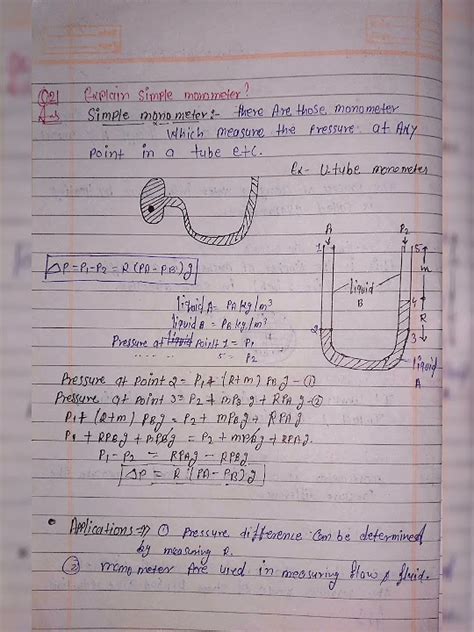 Q2) Explain simple monometer?
Ans Simple monometer:- there Are those monometer
Which measure the Pressure at Any
Point in a tube etc.
Ex- U-tube monometer
ΔP = P1-P2 = R(PA-PB)g
liquid A = PA kg/m³
liquid B = PB kg/m³
Pressure at liquid Point 1 = P1
5 = P2
P2
1
5
m
liquid
B
4
R
2
3
liquid
A
Pressure at Point 2 = P1+(R+m) PBg -①
Pressure at Point 3 = P2+mPBg + RPAg -②
P1+(R+m) PBg = P2+ mPBg + RPAg
P1 + RPBg + mPBg = P2 + mPBg + RPAg.
P1-P2 = RPAg - RPBg
ΔP = R(PA-PB)g
• Applications → ① Pressure difference Can be determined
by measuring R.
② monometer Are used in measuring flow of fluid.